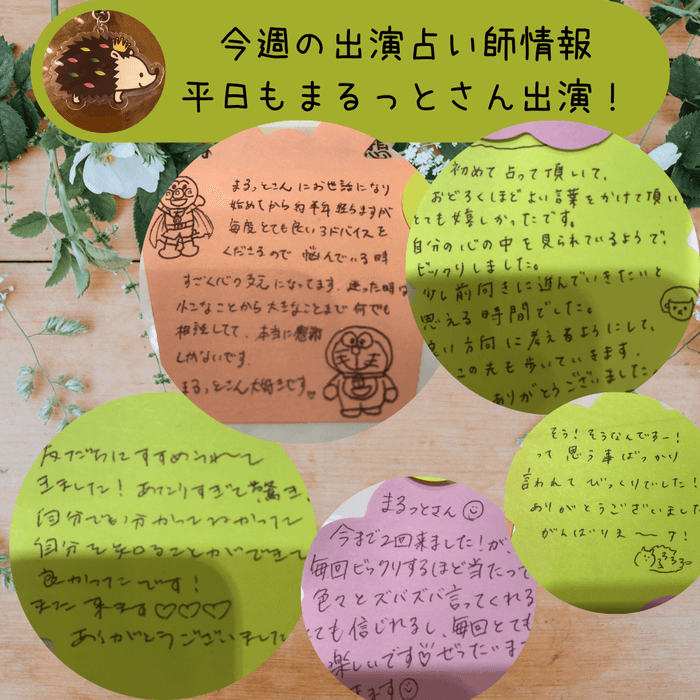 今週の出演占い師情報
平日もまるっとさん出演！
まるっとさんにお世話になり
始めてから約半年経ちますが
毎度とても良いアドバイスを
くださるので 悩んでいる時
すごく心の支えになってます。迷った時や
小さなことから大きなことまで何でも
相談してて、本当に感謝
しかないです。
まるっとさん大好きです♡
初めて占って頂いて、
おどろくほどよい言葉をかけて頂い
とても嬉しかったです。
自分の心の中を見られているようで、
ビックリしました。
少し前向きに進んでいきたいと
思える時間でした。
良い方向に考えるようにして、
この先も歩いていきます。
ありがとうございました。
友だちにすすめられて
きました！あたりすぎて驚き、
自分でも分かってなかった
自分を知ることができて
良かったです！
また来ます♡♡♡
ありがとうございました
まるっとさん
今まで2回来ました！が、
毎回ビックリするほど当たって
色々とズバズバ言ってくれる
とても信じれるし、毎回とても
楽しいです♡ぜったいまた
きます
そう！そうなんですー！
って思う事ばっかり
言われてびっくりでした！
ありがとうございました
がんばりまーす！